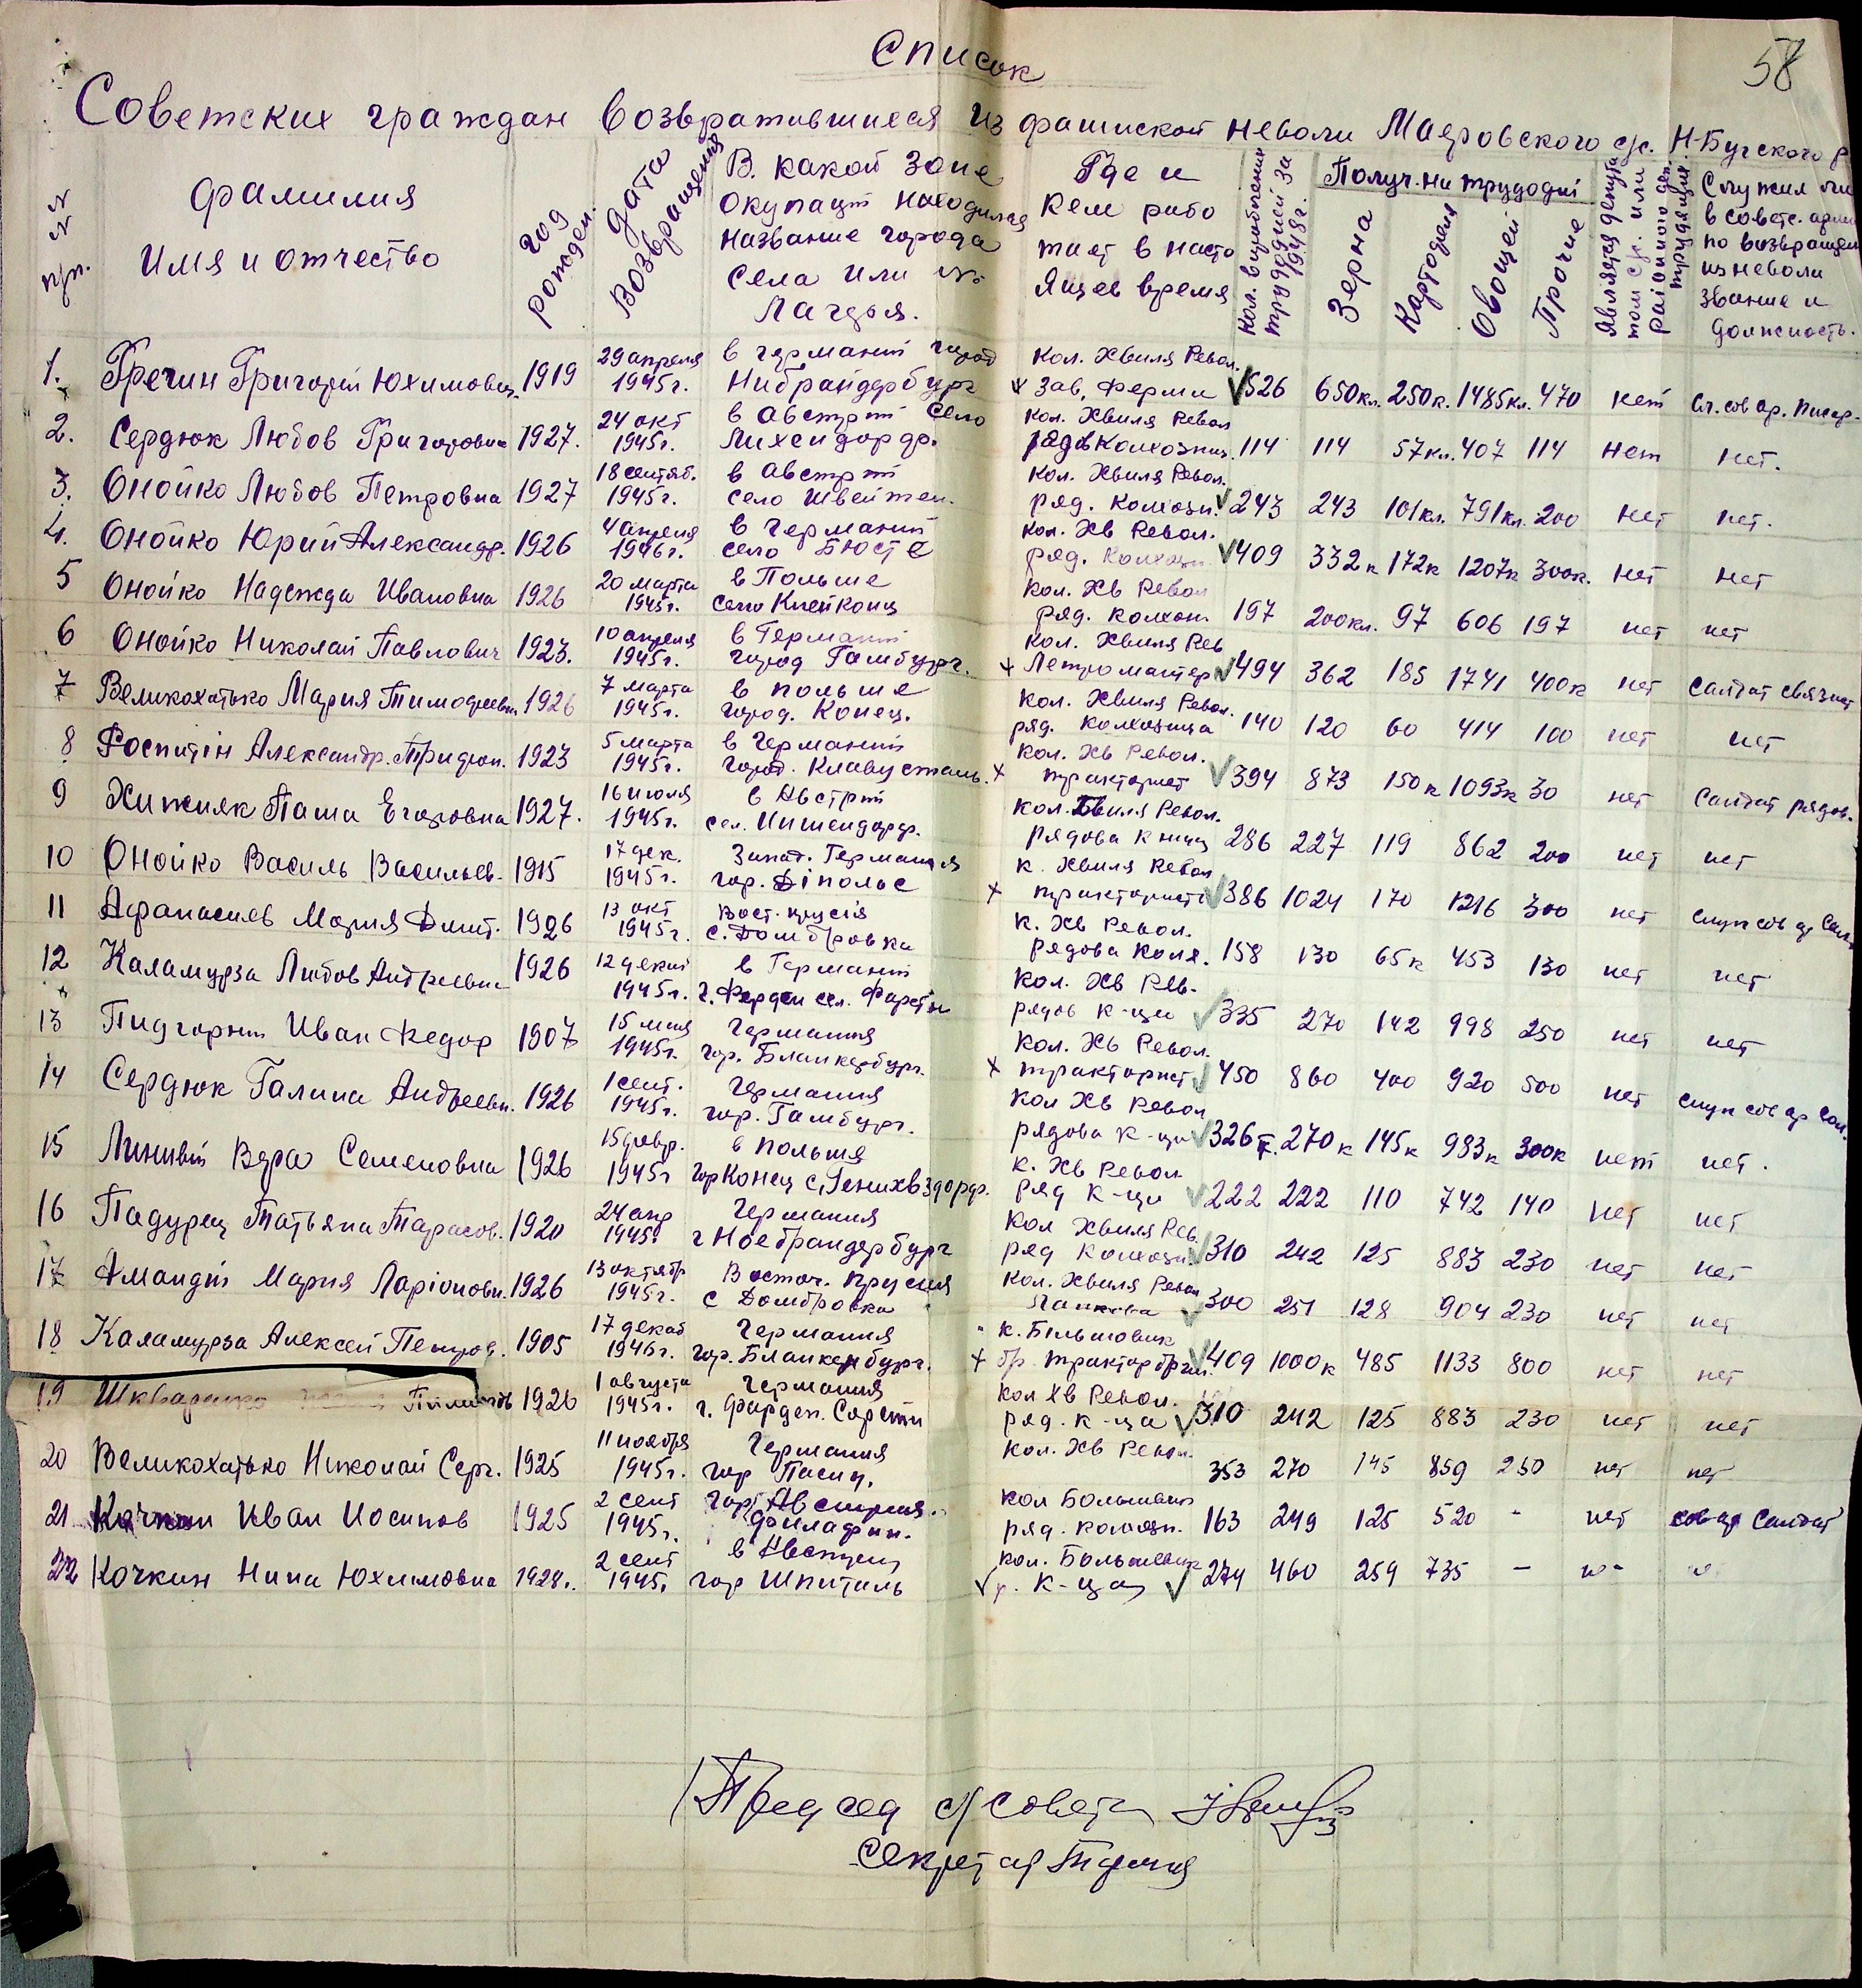 58
Список
Советских граждан возвратившиеся из фашиской неволи Маяровского с/с. Н-Бугского р
№ № п/п.
Фамилия Имя и отчество
год рожден.
дата возвращения
В какой зоне окупации находился название города села или № лагеря.
Где и кем работает в настоящее время
Кол. выработаных трудодней за 1948г.
Получ. на трудодни
Зерна
Картофеля
Овощей
Прочие
Является депутатом с/с. или районного деп. трудящих
Служил ли в советс. армии по возвращен из неволи звание и должность.
1. Гречин Григорий Юхимович. 1919 29 апреля 1945г. в германии город Нибрандербург кол. Хвиля Револ. зав. ферми 526 650кл. 250к. 1485кл. 470 нет Сл. сов ар. писар.
2. Сердюк Любов Григоровна 1927. 24 окт 1945г. в Австрии село Лихендорф. кол. Хвиля Револ рядов колхозниц. 114 114 57кл. 407 114 нет нет.
3. Онойко Любов Петровна 1927 18 сентяб. 1945г. в Австрии село Швейтен. кол. Хвиля Револ. ряд. колхозн. 243 243 101кл. 791кл. 200 нет нет.
4. Онойко Юрий Александр. 1926 4 апреля 1946г. в Германии село Бюсте кол. Хв Револ. ряд. колхозн. 409 332к 172к 1207к 300к. нет нет
5 Онойко Надежда Ивановна 1926 20 марта 1945г. в Польше село Клейконц кол. Хв Револ ряд. колхозн 197 200кл. 97 606 197 нет нет
6 Онойко Николай Павлович 1923. 10 апреля 1945г. в Германии город Гамбург. кол. Хвиля Рев 494 362 185 1741 400к нет Салдат связист
7 Великохатько Мария Тимофеевн 1926 7 марта 1945г. в польше город. Конец. кол. Хвиля Револ. ряд. колхозница 140 120 60 414 100 нет нет
8 Александр. 1923 5 марта 1945г. в Германии город. кол. Хв Револ. тракторист 394 873 150к 1093к 30 нет Салдат рядов.
9 Хижняк Паша Егоровна 1927. 16 июля 1945г. в Австрии сел. кол. Хвиля Револ. рядова к ница 286 227 119 862 200 нет нет
10 Онойко Василь Васильев. 1915 17 дек. 1945г. Запад. Германия гор. Діпольс к. Хвиля Револ тракторист 386 1024 170 1216 300 нет служ сов ар Сал.
11 Афанасиев Мария Дмит. 1926 13 окт 1945г. Вост. прусія с. Домбровка к. Хв Револ. рядова колх. 158 130 65к 453 130 нет нет
12 Каламурза Любов Андреевна 1926 12 декаб 1945г. в Германии г. Ферден сел. кол. Хв Рев. рядов к-ца 335 270 142 998 250 нет нет
13 Пидгорни Иван Федор 1907 15 мая 1945г. Германия гор. Бланкербург. кол. Хв Револ. тракторист. 450 860 400 920 500 нет служ сов ар Сал.
14 Сердюк Галина Андреевн. 1926 1 сент. 1945г. Германия гор. Гамбург. кол Хв Револ рядова к-ца 326к. 270к 145к 983к 300к нет нет.
15 Линивий Вера Семеновна 1926 15 февр. 1945г в Польша гор Конец с. к. Хв Револ ряд к-ца 222 222 110 742 140 нет нет
16 Падурец Татьяна Тарасов. 1920 24 апр 1945г Германия г Ноебрандербург кол Хвиля Рев. ряд колхозн. 310 242 125 883 230 нет нет
17 Амандий Мария Ларіоновн. 1926 13 октябр 1945г. Восточ. прусия с Домбровка кол. Хвиля Револ ланкова 300 251 128 904 230 нет нет
18 Каламурза Алексей Петров. 1905 17 декаб 1946г. Германия гор. Бланкенбург. к. Більшовик бр. трактор бриг. 409 1000к 485 1133 800 нет нет
19 1926 1 августа 1945г. Германия г. Фарден. кол Хв Револ. ряд. к-ца 310 242 125 883 230 нет нет
20 Великохатько Николай Серг. 1925 11 ноября 1945г. Германия гор кол. Хв Револ. 353 270 145 859 250 нет нет
21 Качкин Иван Иосипов 1925 2 сент 1945г. гор Австрия. кол Большевик ряд. колхозн. 163 249 125 520 - нет сов ар Салдат
22 Кочкин Нина Юхимовна 1928г. 2 сент 1945г в Австрии гор Шпиталь кол. Большевик р. к-ца 274 460 259 735 - н-
Председ с/совета
Секретар